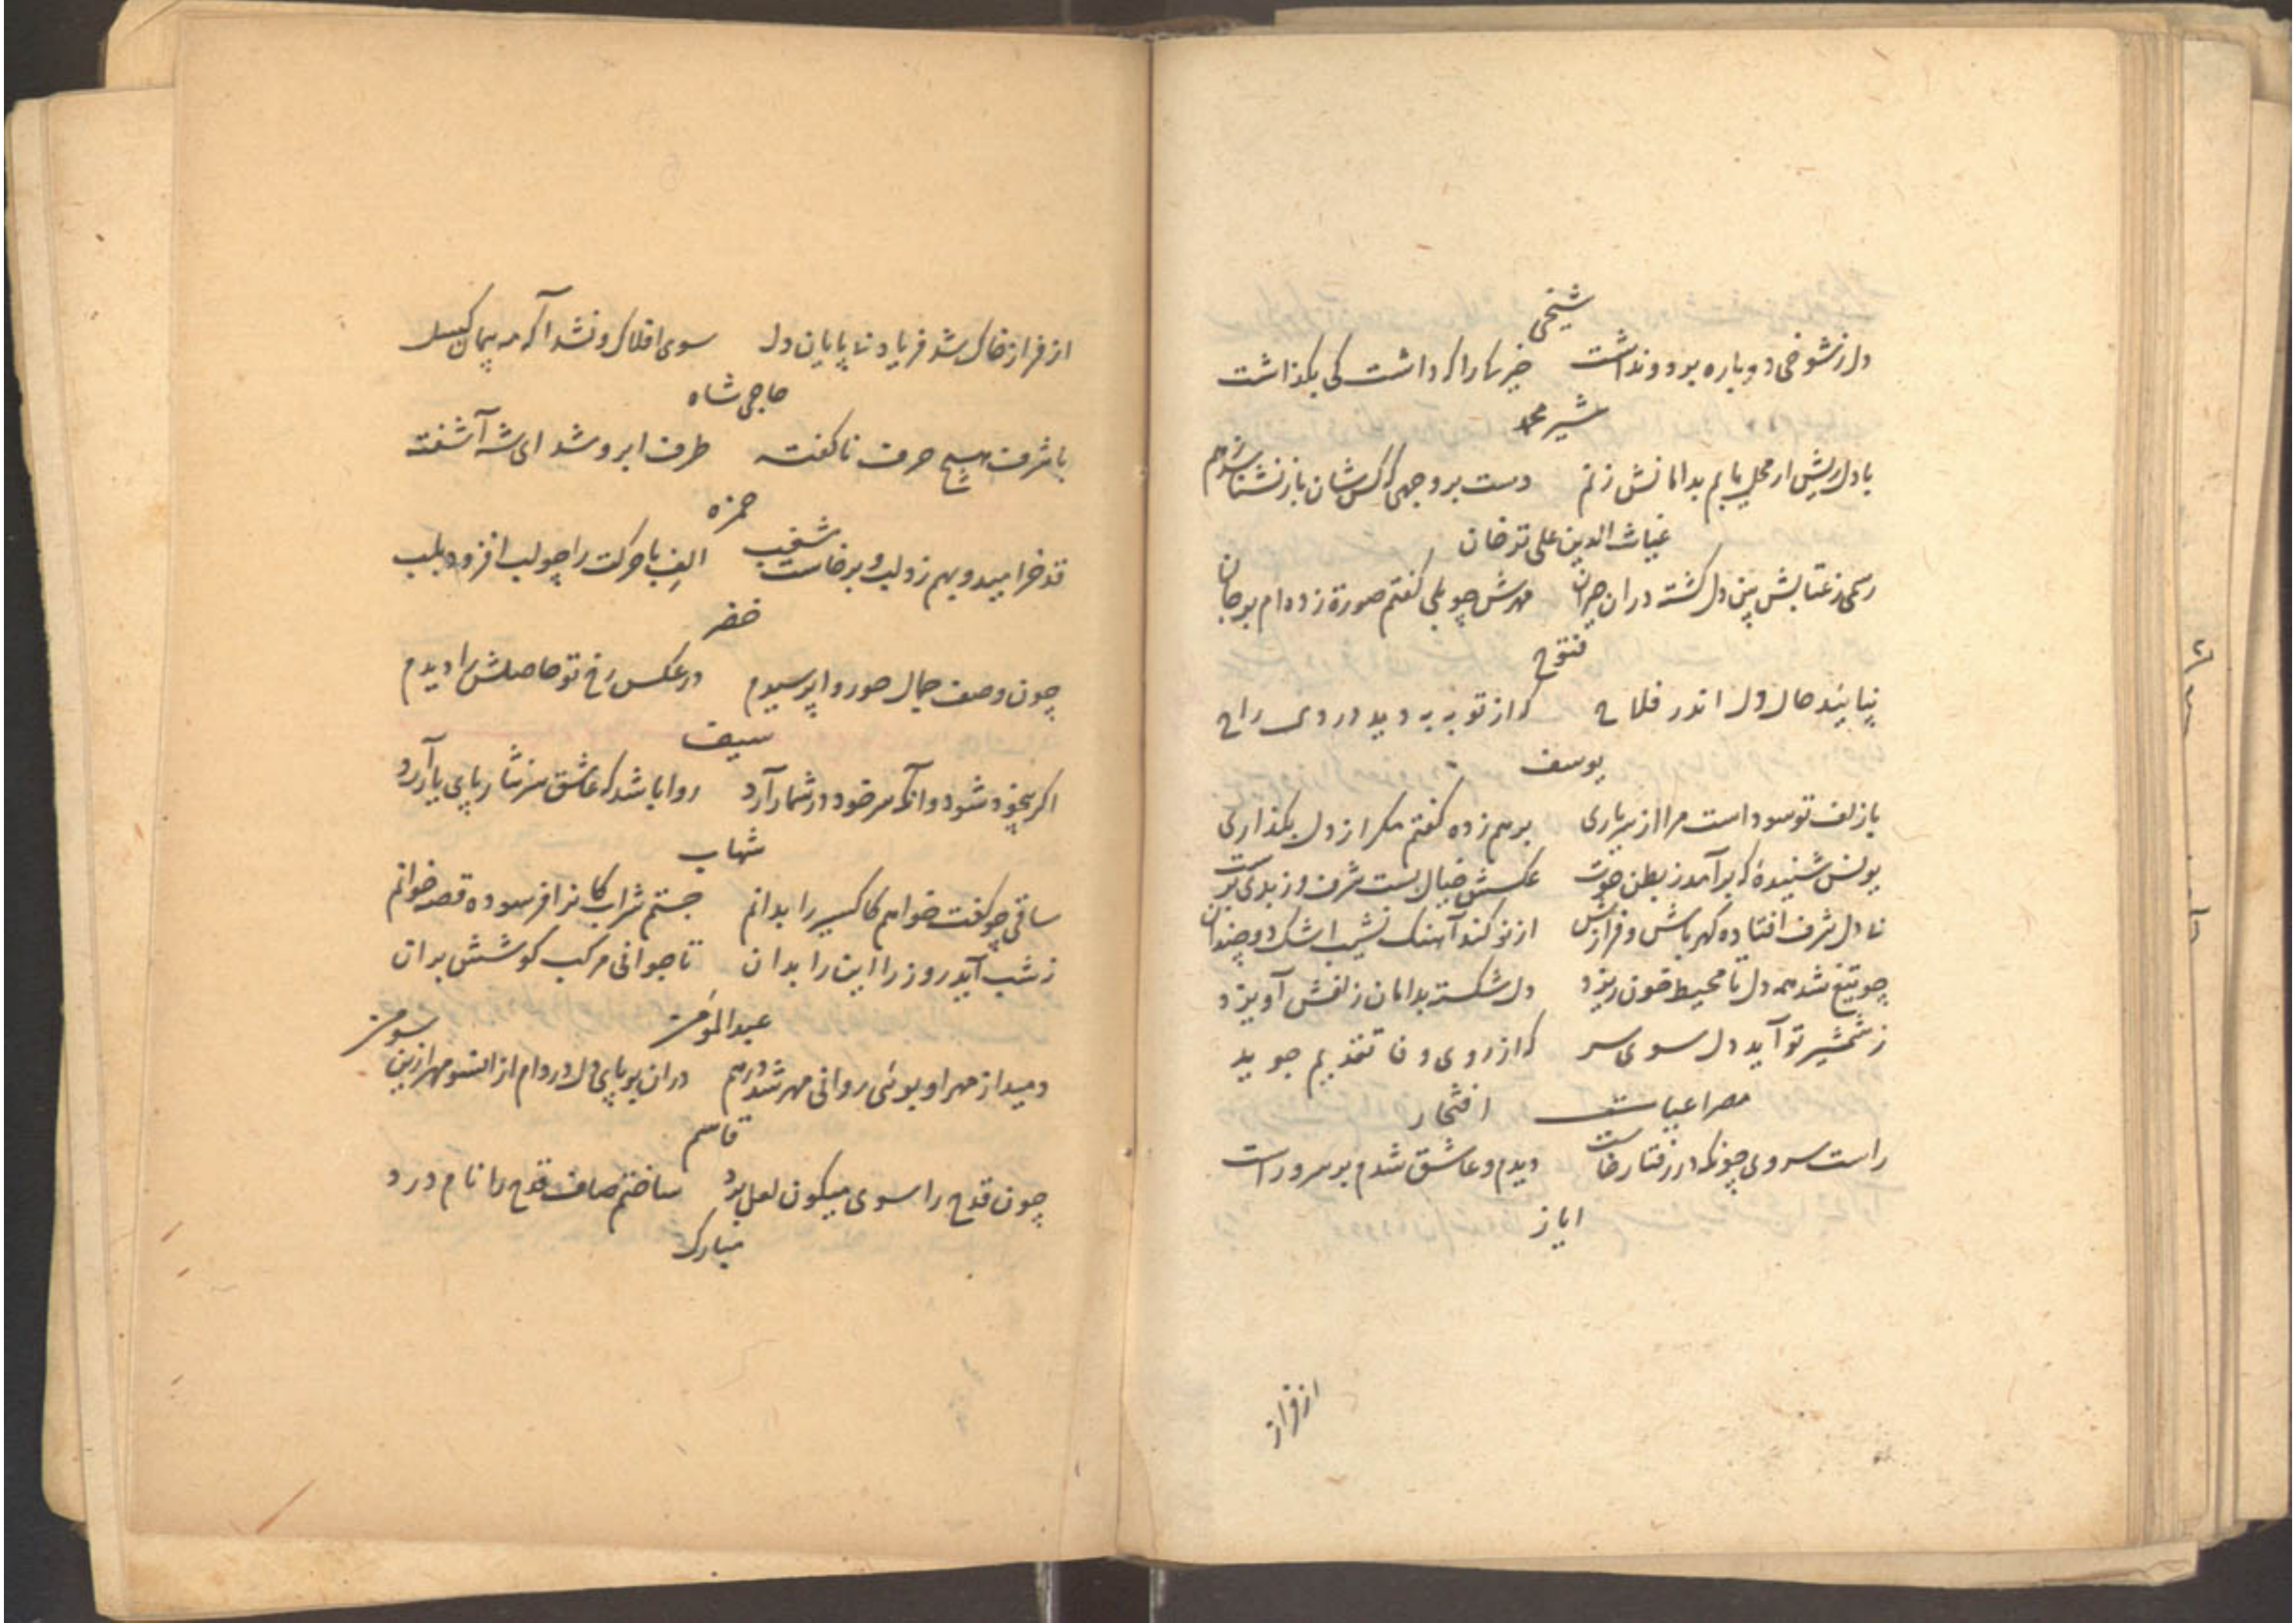 شیخی
دل ز شوخی دوباره برد و نداشت خیر ما را که داشت کی بگذاشت
شیر محمد
با دل ریش ار محلی یابم بدامانش زنم دست بر وجهی که کس شان باز نشناسد ز هم
غیاث الدین علی ترخان
رسمی ز عتابش بین دل گشته در ان حیران مهرش چو بلی گفتم صورة زده ام بر جان
فتوح
بیا بیند حال دل اندر فلاح که از توبه به دید دردی راح
یوسف
با زلف تو سوداست مرا از سر یاری برهم زده گفتم مگر از دل بگذاری
یونس شنیدهٔ که برآمد ز بطن حوت عکسش خیال بست شرف وز بدی
تا دل شرف افتاده گهر باش و فرازش از نو کند آهنگ نشیب اشک دو چندان
چو تیغ شد همه دل تا محیط خون ریزد دل شکسته بدامان زلفش آویزد
ز شمشیر تو آید دل سوی سر که از روی وفا تقدیم جوید
مصراعیات افتخار
راست سروی چونکه در رفتار خاست دیدم و عاشق شدم بر سرو راست
ایاز
از فراز
از فراز خاک شد فریاد تا پایان دل سوی افلاک و نشد آگه مه پیمان گسل
حاجی شاه
با شرف هیچ حرف ناگفته طرف ابرو شد ای شه آشفته
حمزه
قد خرامید و بهم زد لب و برخاست شغب الف با حرکت را چو لب افزود بلب
خضر
چون وصف جمال حور وا پرسیدم در عکس رخ تو حاصلش را دیدم
سیف
اگر بیخود شود وانگه سر خود در شمار آرد روا باشد که عاشق سر نثار پای یار آرد
شهاب
ساقی چو گفت خواهم کاکسیر را بدانم جستم شراب کانرا افرسوده قصه خوانم
ز شب آید روز را اینرا بدان تا جوانی مرکب کوشش بران
عبد المؤمن
دمید از مهر او بوئی روانی مهر شد درهم در ان بو پای دل در دام از انسو مهر ازین سو من
قاسم
چون قدح را سوی میگون لعل برد ساختم صاف قدح را نام درد
مبارک